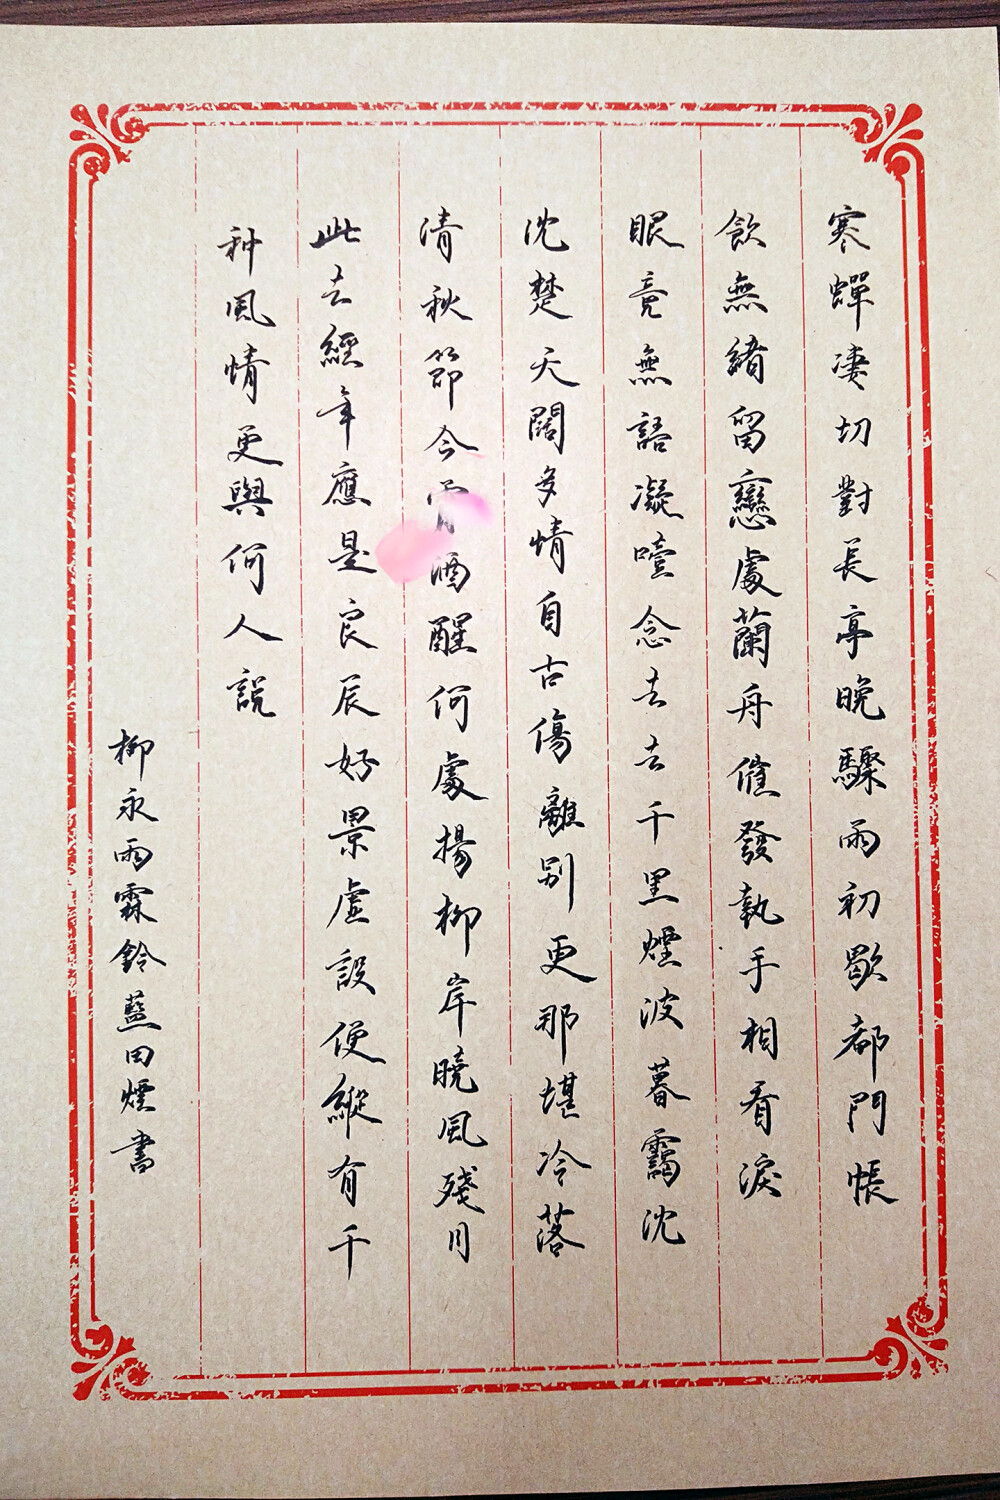 寒蟬凄切對長亭晚驟雨初歇都門帳
飲無緒留戀處蘭舟催發執手相看淚
眼竟無語凝噎念去去千里煙波暮靄沈
沈楚天闊多情自古傷離別更那堪冷落
清秋節今宵酒醒何處揚柳岸曉風殘月
此去經年應是良辰好景虛設便縱有千
种風情更與何人說
柳永雨霖鈴藍田煙書